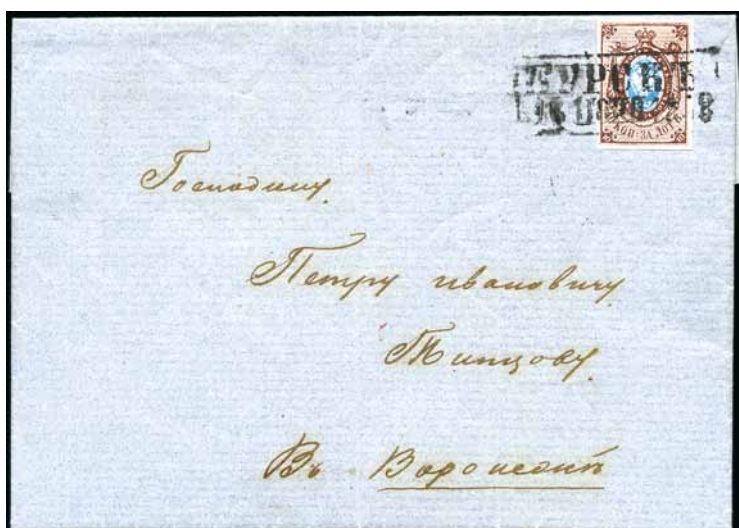 КУРСКЪ
КОП: ЗА ЛОТЪ.
Господину
Петру ивановичу
Типцову
Въ Воронежъ